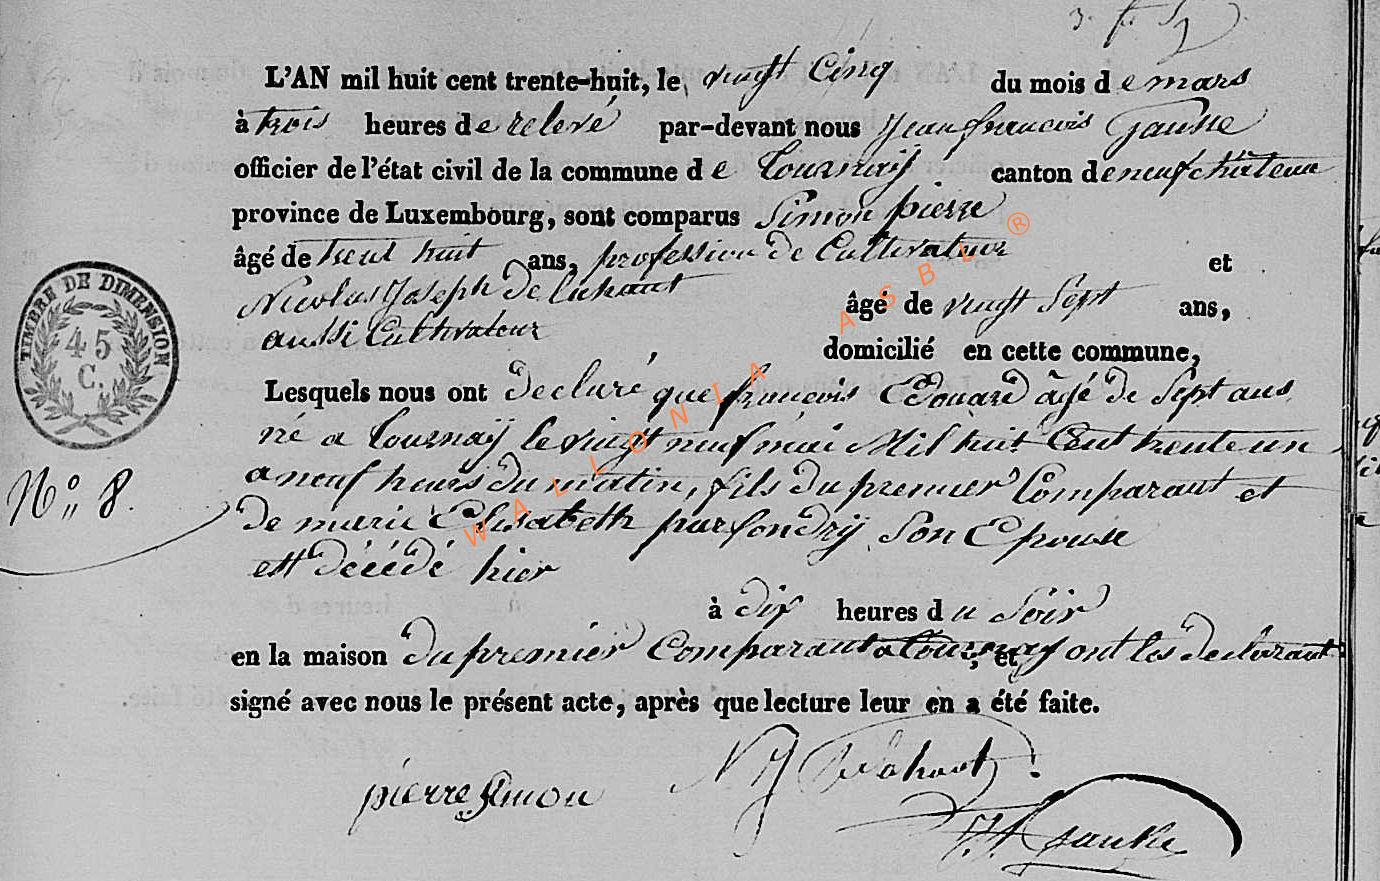 L'AN mil huit cent trente-huit, le vingt Cinq du mois de mars
à trois heures de relevé par-devant nous Jean francois
officier de l'état civil de la commune de tournay canton de neufchateau
province de Luxembourg, sont comparus Simon pierre
âgé de trent huit ans, profession de Cultivateur et
Nicolas Joseph Delahaut âgé de vingt Sept ans,
aussi Cultivateur
domicilié en cette commune,
Lesquels nous ont declaré que francois Edouard âgé de Sept ans
né a tournaÿ le vingt neuf mai Mil huit Cent trente un
a neuf heurs du matin, fils du premier Comparant et
de marie Elisabeth parfondrÿ Son Epouse
est décédé hier
à dix heures du Soir
en la maison du premier Comparant a tournay, et ont les declarant
signé avec nous le présent acte, après que lecture leur en a été faite.
pierre Simon
N J Delahaut
TIMBRE DE DIMENSION
45
C.
N° 8.
WALLONIA ASBL ®